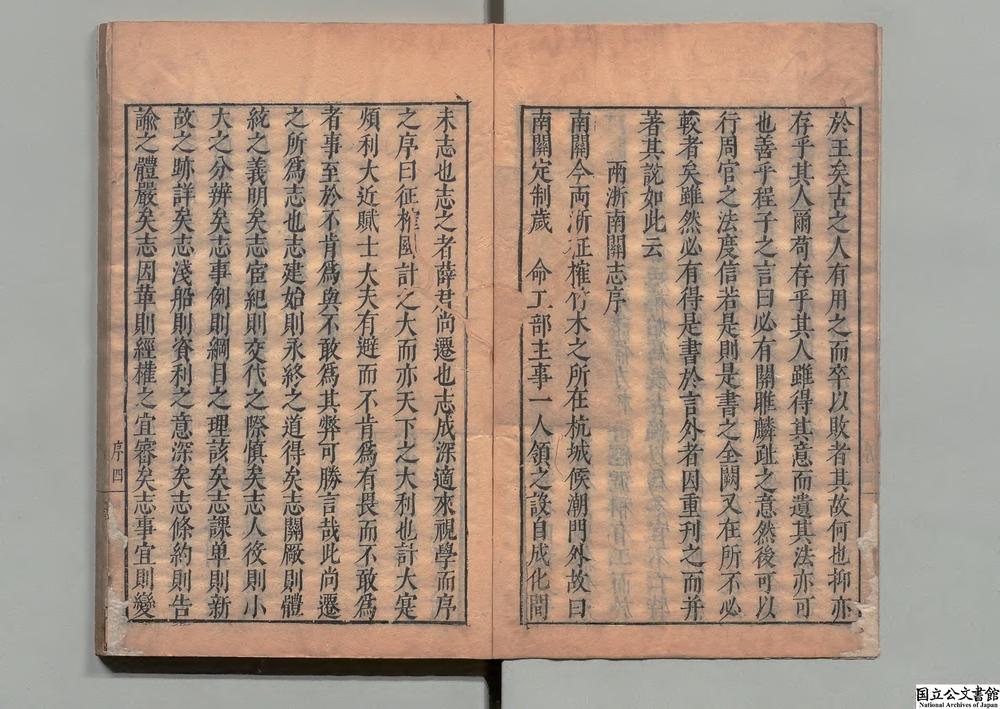 於王矣古之人有用之而卒以敗者其故何也抑亦
存乎其人爾苟存乎其人雖得其意而遺其法亦可
也善乎程子之言曰必有關雎麟趾之意然後可以
行周官之法度信若是則是書之全闕又在所不必
較者矣雖然必有得是書於言外者因重刊之而并
著其說如此云
兩浙南關志序
南關今兩浙征榷竹木之所在杭城候潮門外故曰
南關定制歲 命工部主事一人領之設自成化間
未志也志之者薛君尚遷也志成深適來視學而序
之序曰征榷國計之大而亦天下之大利也計大寔
煩利大近賦士大夫有避而不肯爲有畏而不敢爲
者事至於不肯爲與不敢爲其弊可勝言哉此尚遷
之所爲志也志建始則永終之道得矣志關厰則體
統之義明矣志宦紀則交代之際慎矣志人役則小
大之分辨矣志事例則綱目之理該矣志課单則新
故之跡詳矣志淺船則資利之意深矣志條約則告
諭之體嚴矣志因革則經權之宜審矣志事宜則變
序四
国立公文書館
National Archives of Japan